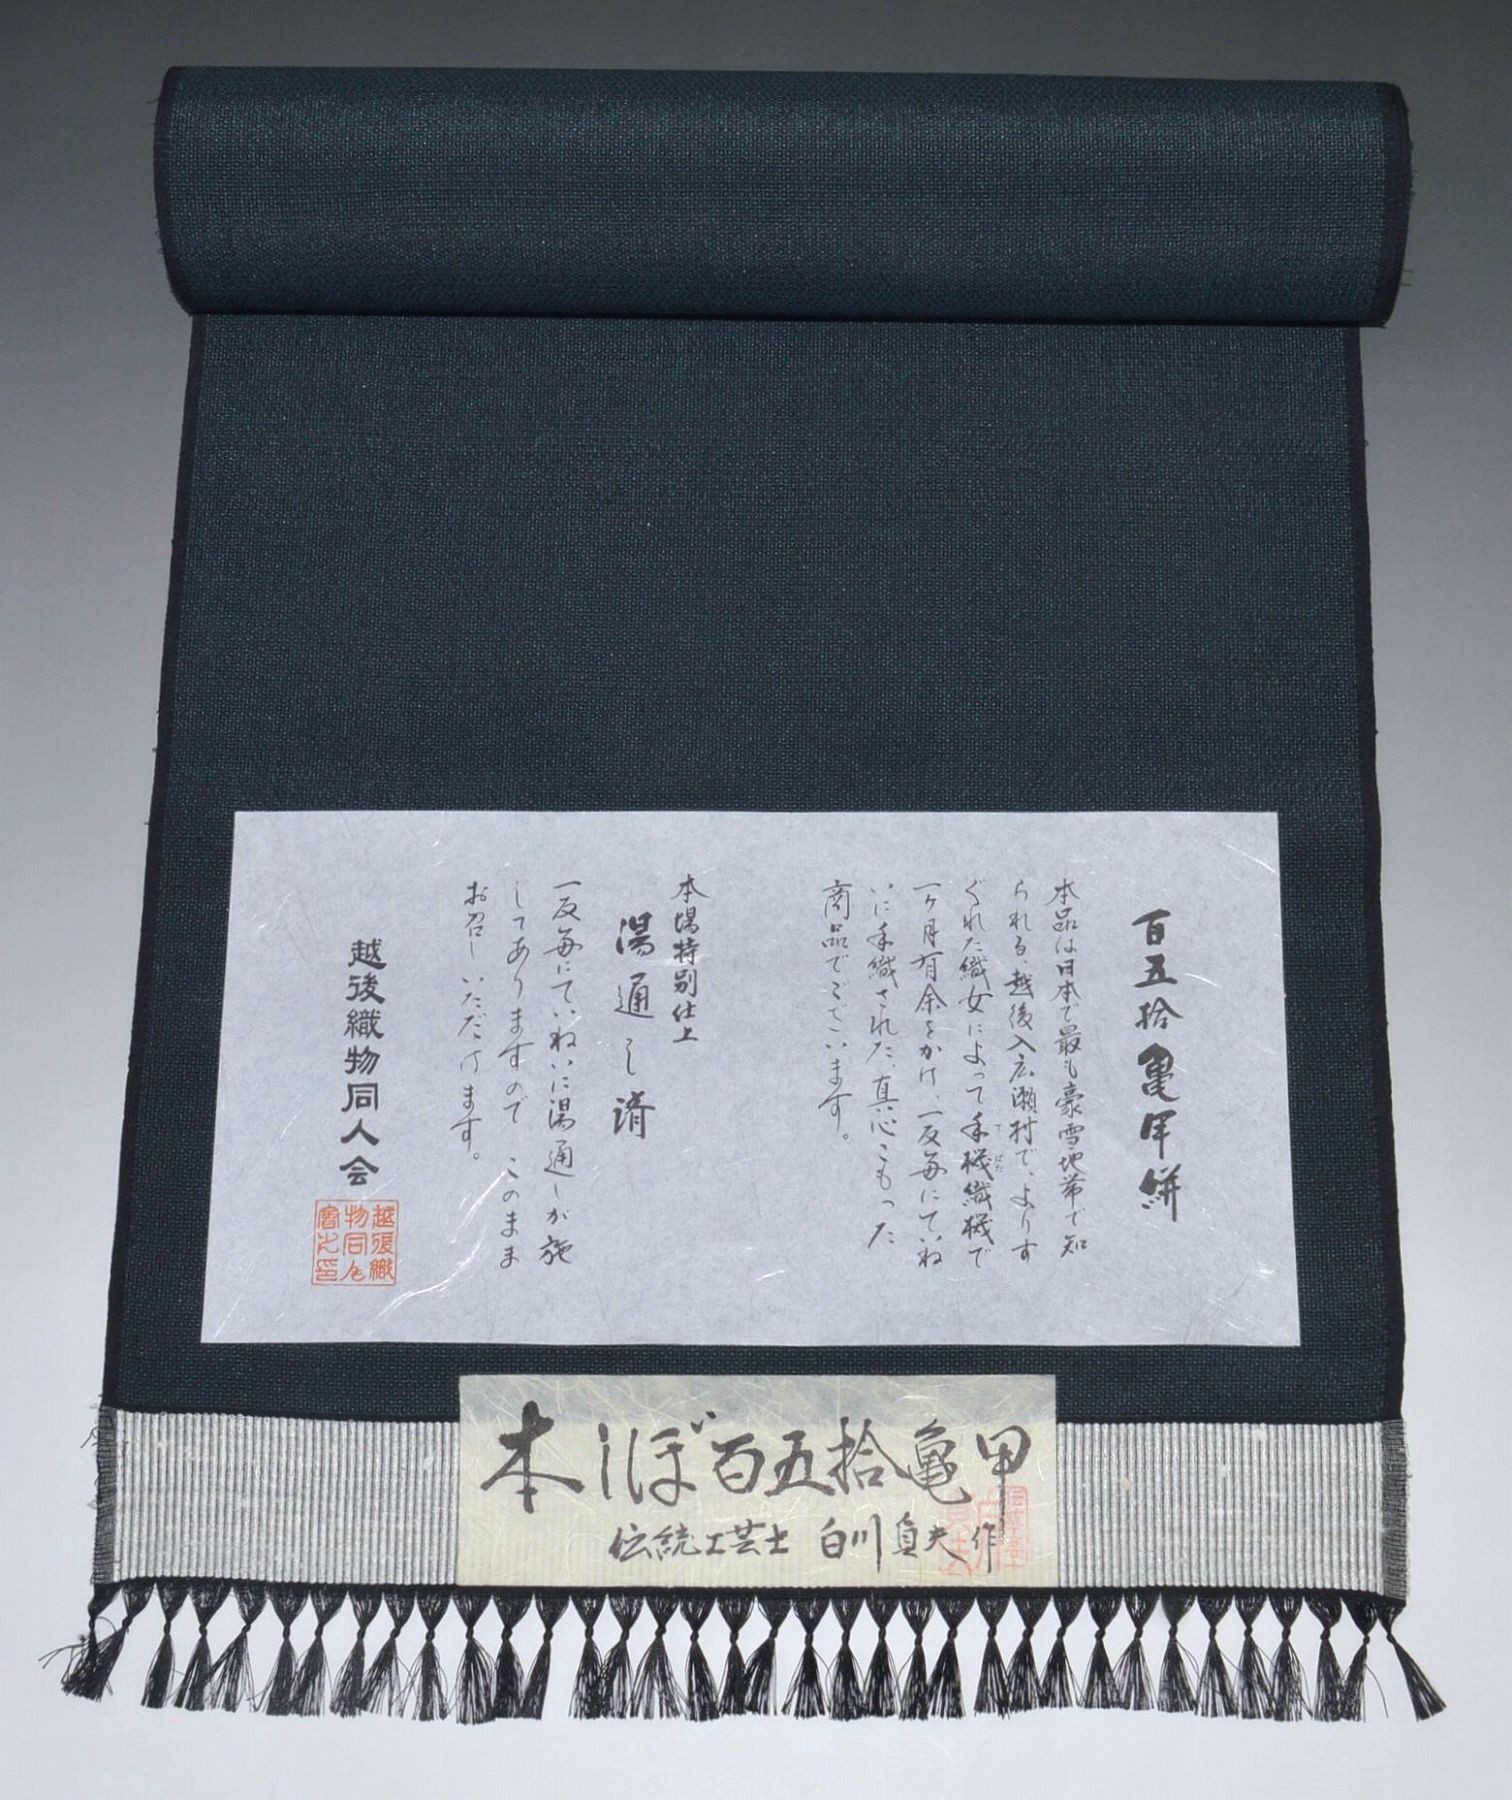 百五拾亀甲絣
本品は日本で最も豪雪地帯で知
られる、越後入広瀬村で、よりす
ぐれた織女によって手機織機で
てばた
一ヶ月有余をかけ、一反毎にていね
いに手織された、真心こもった
商品でございます。
本場特別仕上
湯通し済
一反毎にていねいに湯通しが施
してありますので、このまま
お召しいただけます。
越後織物同人会
本しぼ百五拾亀甲
伝統工芸士 白川真夫作